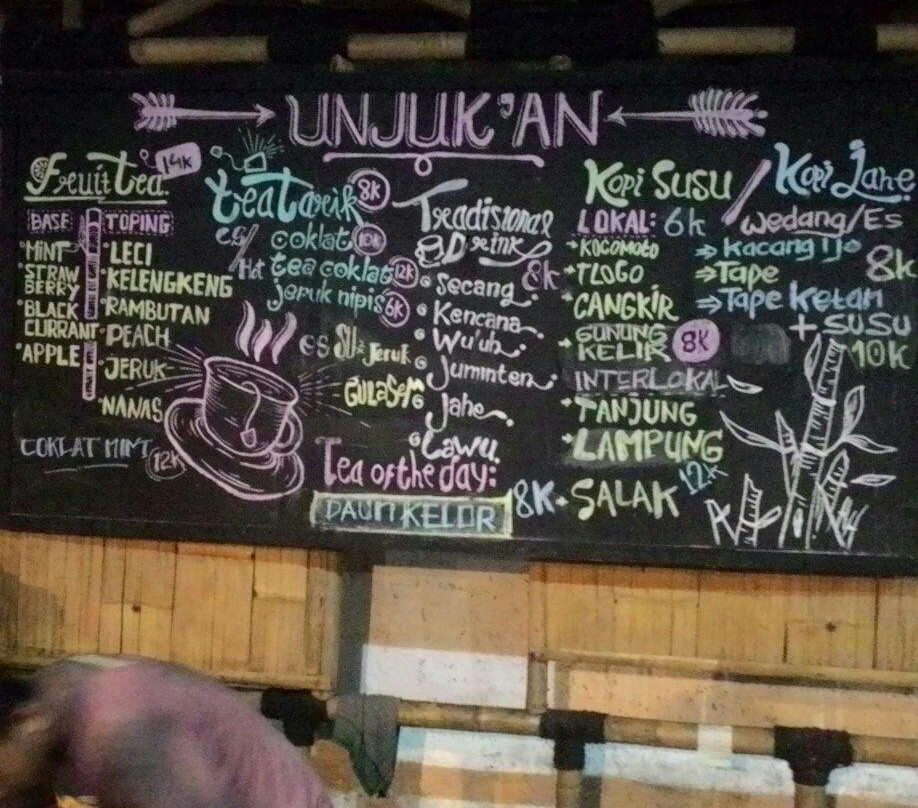 UNJUK'AN
Fruit Tea.
14K
BASE
TOPING
MINT
STRAW
BERRY
BLACK
CURRANT
APPLE
LECI
KELENGKENG
RAMBUTAN
PEACH
JERUK
NANAS
COKLAT MINT
12K
tea Tarik 8K
es/
Hot
coklat 10K
tea coklat 12K
jeruk nipis 6K
es SU Jeruk
GULASEM
Tradisional
Drink
8k
Secang
Kencana
Wu'uh
Juminten
Jahe
Lawu
Tea of the day:
DAUN KELOR
8K
Kopi Susu / Kopi Jahe
LOKAL: 6k
TLOGO
CANGKIR
GUNUNG
KELIR
8K
INTERLOKAL
TANJUNG
LAMPUNG
SALAK
12k
wedang/Es
Kacang Ijo
Tape
8k
Tape Ketan
+ SUSU
10K